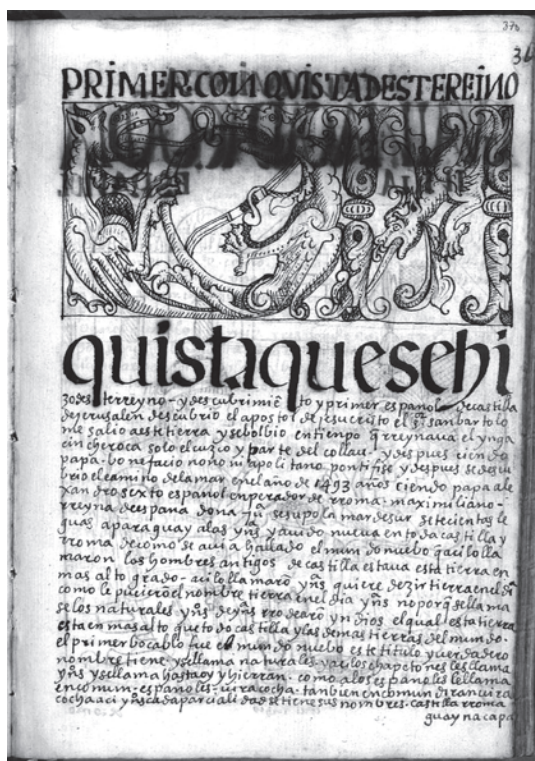 370
PRIMER.CONQVISTA DESTE REINO
quista que se hi
zo deste rreyno - y descubrimiēto y primer español de castilla
de jerusalen descubrio el apostol de jesucristo el sr san bartolo
me salio a esta tierra y se bolbio en tienpo q̄ rreynaua el ynga
cinche roca solo el cuzco y parte del collau - y despues ciendo
papa bonefacio nono napolitano pontifise y despues se descu
brio el camino de la mar en el año de 1493 años ciendo papa ale
xandro sexto español enperador de rroma - maximiliano -
rreyna de espana dona ju͞a se supo la mar de sur setecientas le
guas a paraguay a las yn͞s y auido nueua en toda castilla y
rroma de como se auia hallado el mundo nuebo q̄ aci lo lla
maron los hombres antigos de castilla estaua esta tierra en
mas alto grado - aci lo llamaro yn͞s quiere dezir tierra en el dia
como le pucieron el nombre tierra en el dia yn͞s no porq̄ se llama
se los naturales yn͞s de yn͞s rrodearon yndios el qual esta tierra
esta en mas alto que todo castilla y las demas tierras del mundo -
el primer bocablo fue el mundo nuebo este titulo y uerdadero
nombre tiene - y se llama naturales - y aci los chapetones les llama
yn͞s y se llama hasta oy y hierran - como a los españoles le llama
en comun - españoles - uira cocha - tanbien en comun diran uira
cocha aci y yn͞s cada parcialidad se tiene sus nombres - castilla rroma
guayna capa